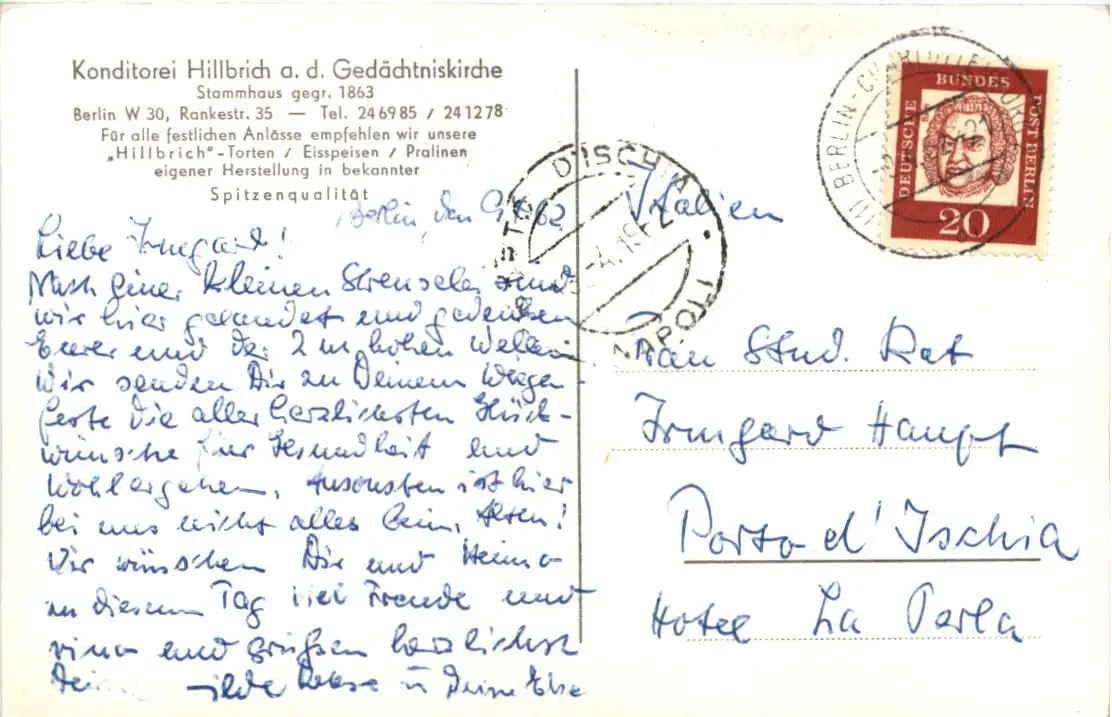 Konditorei Hillbrich a. d. Gedächtniskirche
Stammhaus gegr. 1863
Berlin W 30, Rankestr. 35 — Tel. 24 69 85 / 24 12 78
Für alle festlichen Anlässe empfehlen wir unsere
„Hillbrich"-Torten / Eisspeisen / Pralinen
eigener Herstellung in bekannter
Spitzenqualität
Berlin, den 62
Liebe Irmgard!
Nach einer kleinen sind
wir hier gelandet und gedenken
Eurer und der 2 m hohen Wellen
Wir senden Dir zu Deinem Wiegen-
feste die allerherzlichsten Glück-
wünsche für Gesundheit und
Wohlergehen. Ansonsten ist hier
bei uns nicht alles beim Alten!
Wir wünschen Dir und Heino
zu diesem Tag viel Freude und
vino und grüßen herzlichst
Deine u Deine Else
DEUTSCHE BUNDESPOST BERLIN
20
BERLIN-CHARLOTTENBURG
ISCHIA
NAPOLI
Italien
Frau Stud. Rat
Irmgard Haupt
Porto d'Ischia
Hotel La Perla